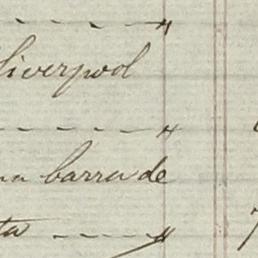 - - - - "
Liverpool
- - - - "
una barra de
ta - - - "